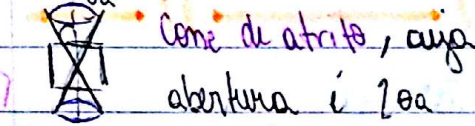 θa
Cone de atrito, cuja
abertura é 2θa